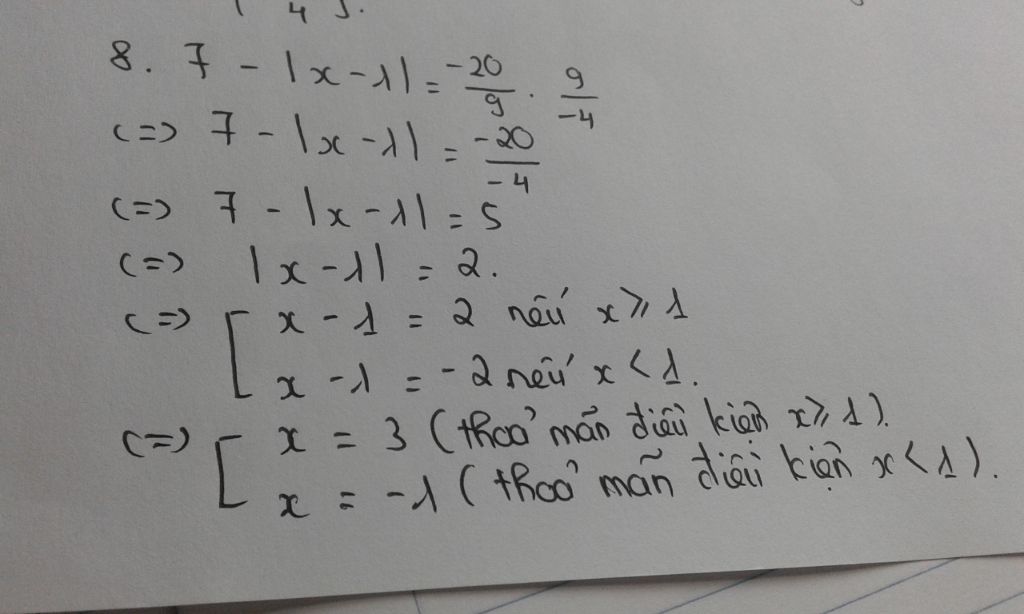 4
8. 7 - |x - 1| = -20/9 . 9/-4
(=) 7 - |x - 1| = -20/-4
(=) 7 - |x - 1| = 5
(=) |x - 1| = 2.
(=) [ x - 1 = 2 nếu x ⩾ 1
x - 1 = -2 nếu x < 1.
(=) [ x = 3 (thoả mãn điều kiện x ⩾ 1).
x = -1 (thoả mãn điều kiện x < 1).